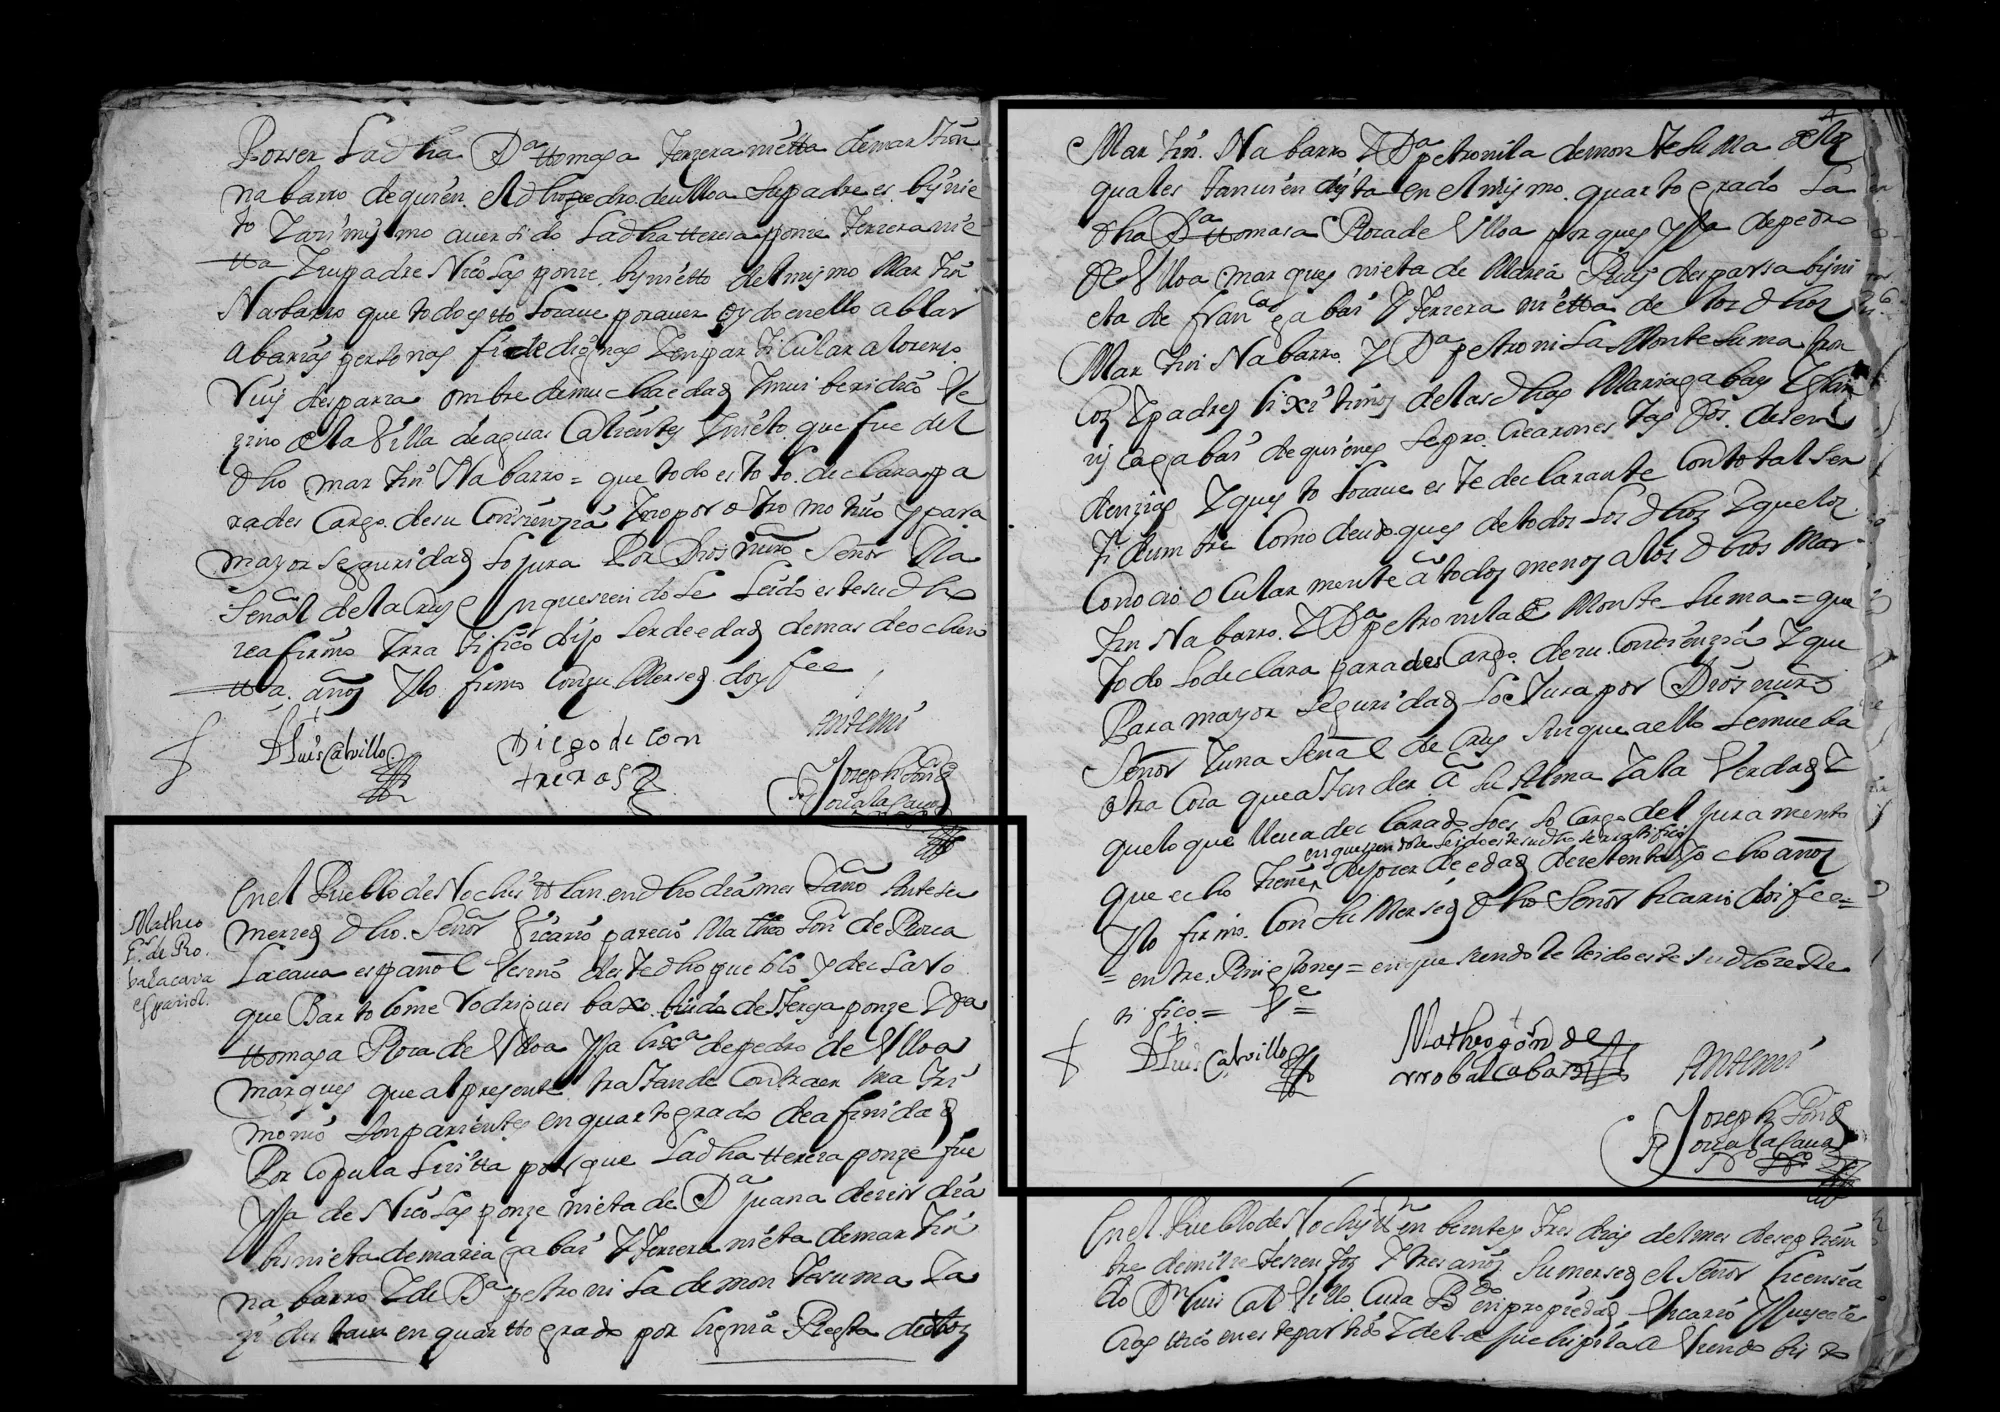 Por ser la dha Da ttomasa terzera nietta de martin
nabarro de quien el dho pedro de ulloa su padre es bijnie
to y asimismo auer sido la dha tteresa ponze terzera nie
tta y su padre Nicolas ponze bijnietto del mismo Martin
Nabarro que todo estto lo saue por auer oydo en ello ablar
a barias personas fidedignas y en particular a lorenzo
Ruis desparza ombre de mucha edad y mui beridico Ve
zino de la Villa de aguas Calientes y nieto que fue del
dho martin Nabarro = que todo esto lo declara pa
ra descargo de su Conzienzia y no por otro motiuo y para
mayor seguridad lo jura Por Dios nuro Señor y la
Señal de la Cruz en que siendole leido este su dho
se afirmo y rratifico dijo ser de edad de mas de ochen
tta años y lo firmo Con su Merced doy fee
Br Luis Calvillo
Diego de Con
treras
Antemi
Joseph Gonz
de la Caua
En el Pueblo de Nochistlan en dho dia mes y año Ante su
merced dho Señor Vicario parecio Matheo Gonz de Ruua
lacaua español Vesino deste dho pueblo y declaro
Matheo
G. de Ro.
balacava
español.
que Bartolome Rodrigues baxo biudo de Teresa ponze y Da
ttomasa Rosa de Ulloa yja lixa de pedro de Ulloa
marques que al presente tratan de Contraer Matri
monio son parientes en quarto grado de afinidad
Por Copula lisitta por que la dha tteresa ponze fue
yja de Nicolas ponze nieta de Da Juana de
bisnieta de maria gabai y terzera nieta de martin
nabarro y de Da petronila de montesuma
en quartto grado por linia Recta de dhos
Martin Nabarro y Da petronila de montesuma de los
quales tanuien dista en el mismo quarto grado la
dha Da ttomasa Rosa de Ulloa por ques yja de pedro
de Ulloa marques nieta de Maria Ruis desparsa bisni
eta de franca gabai y terzera nietta de los dhos
Martin Nabarro y Da petronila Montesuma
y padres lixitimos de las dhas Maria gabay y fran
cisca gabai de quienes se procrearon estas dos desen
denzias y questo lo saue este declarante Con total Ser
tidumbre Como deudo ques de todos los dhos y que los
Conocio ocularmente a todos menos a los dhos Mar
tin Nabarro y Da petronila de Montesuma = que
todo lo declara para descargo de su Conzienzia y que
Para mayor Seguridad lo Jura por Dios nuro
Señor y una Señal de Cruz sin que a ello le mueba
otra Cosa que atender a su Alma y a la Verdad y
que lo que lleua declarado es so Cargo del juramento
en que siendole leido este su dho se rratifico
que echo tiene dijo ser de edad de setenta y ocho años
y lo firmo Con su Merced dho Señor bicario doi fee =
= entre Renglones = en que siendole leido este su dho se Ra
tifico = Ve =
Br Luis Calvillo
Matheo gon de
rrobalcaba
Antemi
Joseph Gonz
de la Caua
En el Pueblo de Nochistlan en beintey tres dias del mes de septiem
bre de mil e seysientos y tres años su merced el Señor licencia
do Dn luis Calvillo Cura Bdo en propiedad Vicario y Juez ecle
siastico en este partido y del de Juchipila Viendo